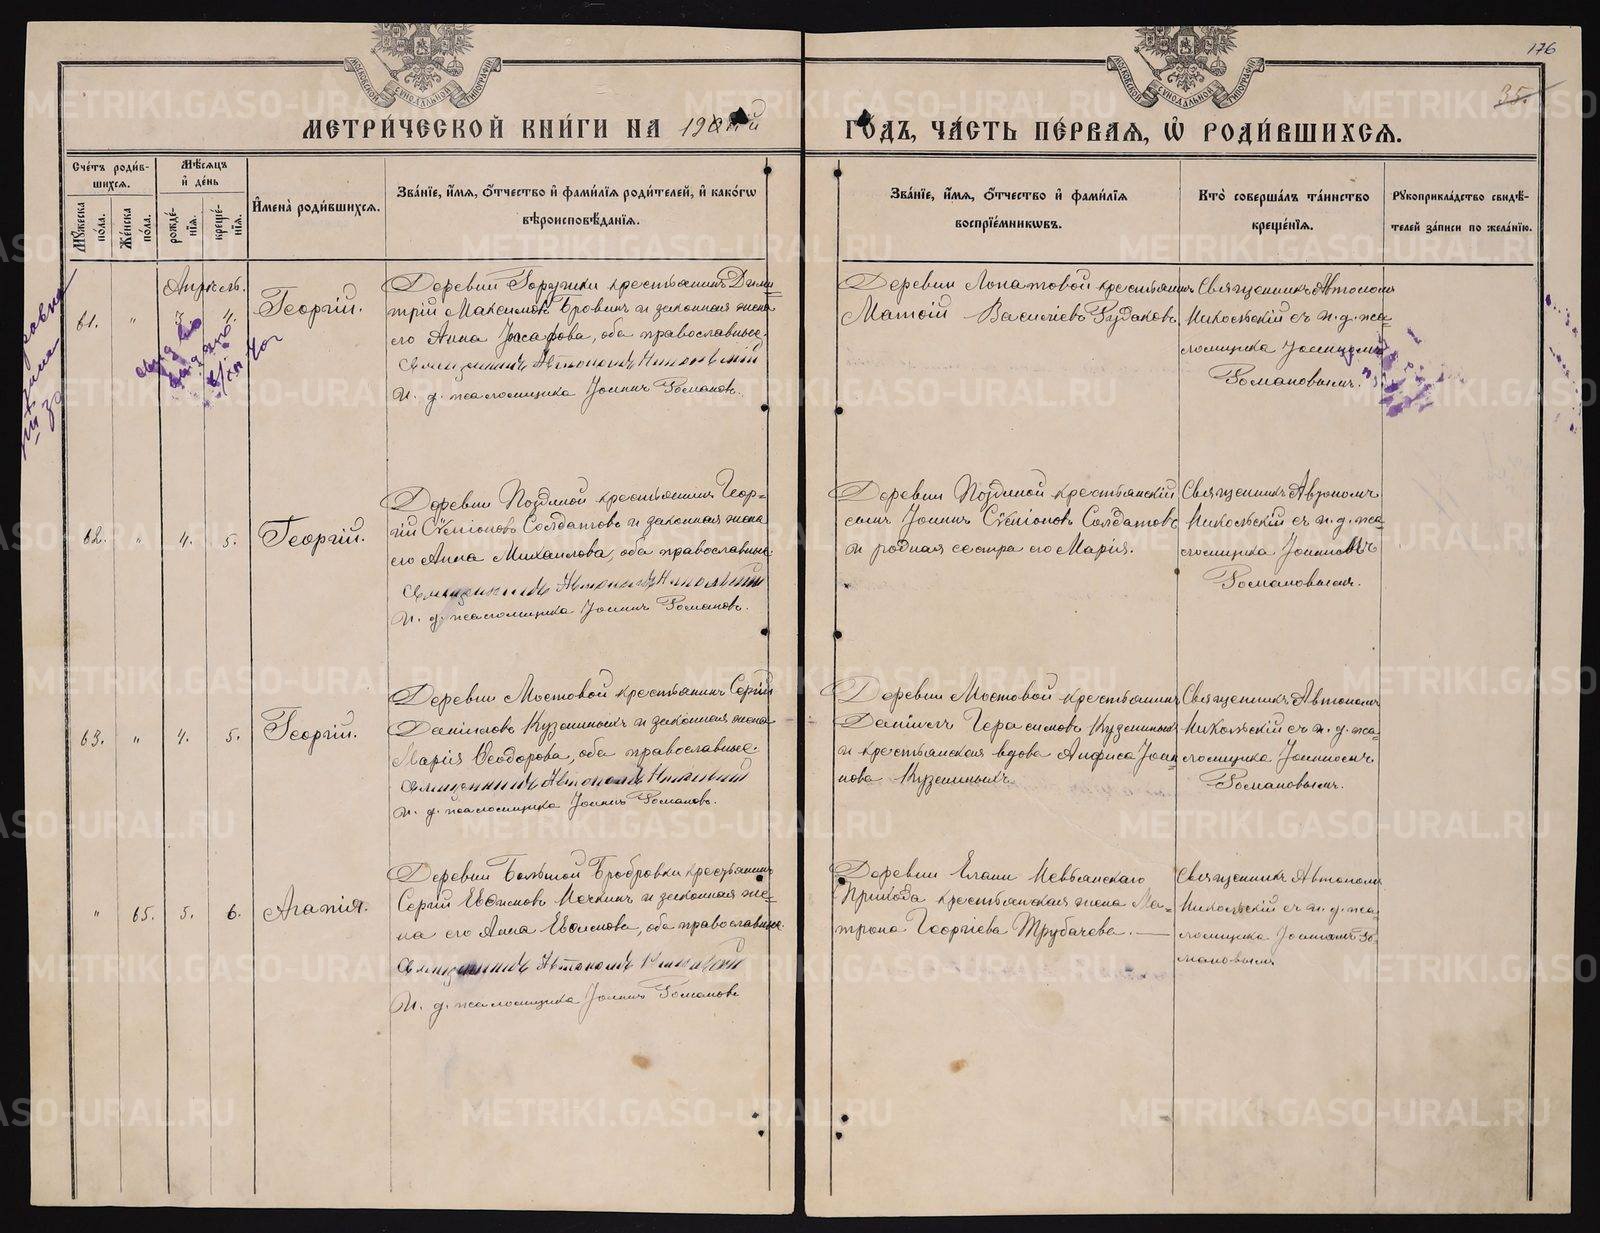 176
35.
МОСКОВСКОЙ СѴНОДАЛЬНОЙ ТИПОГРАФІИ
МОСКОВСКОЙ СѴНОДАЛЬНОЙ ТИПОГРАФІИ
МЕТРИ́ЧЕСКОЙ КНИ́ГИ НА 190
ГО́ДЪ, ЧА́СТЬ ПЕ́РВАѦ, Ѡ҆ РОДИ́ВШИХСѦ.
Сче́тъ роди́в-
шихсѧ.
Мꙋ́жеска по́ла.
Же́нска по́ла.
Мѣ́сѧцъ и҆ де́нь
рожде́-
нїѧ.
креще́-
нїѧ.
И҆мена̀ роди́вшихсѧ.
Зва́нїе, и҆́мѧ, ѻ҆́тчество и҆ фами́лїѧ роди́телей, и҆ како́гѡ
вѣроисповѣ́данїѧ.
Зва́нїе, и҆́мѧ, ѻ҆́тчество и҆ фами́лїѧ
воспрїе́мникѡвъ.
Кто̀ соверша́лъ та́инство
креще́нїѧ.
Рꙋкоприкла́дство свидѣ́-
телей за́писи по жела́нїю.
Апрѣль.
61. " 3 4. Георгій.
Деревни Горушки крестьянинъ Дими
трій Максимовъ Бровинъ и законная жена
его Анна Іоасафова, оба православные.
Священникъ Автономъ Никольскій
И. д. псаломщика Іоаннъ Романовъ.
Деревни Лопатовой крестьянинъ
Матѳій Васильевъ Рудаковъ
Священникъ Автономъ
Никольскій съ и. д. пса-
ломщика Іоанномъ
Романовымъ.
62. " 4. 5. Георгій.
Деревни Поздиной крестьянинъ Геор=
гій Стефановъ Солдатовъ и законная жена
его Анна Михаилова, оба православные
Священникъ Автономъ Никольскій
И. д. псаломщика Іоаннъ Романовъ.
Деревни Поздиной крестьянскій
сынъ Іоаннъ Солдатовъ
и родная сестра его Марія.
Священникъ Автономъ
Никольскій съ и. д. пса
ломщика Іоанномъ
Романовымъ.
63. " 4. 5. Георгій.
Деревни Мостовой крестьянинъ Сергій
Даніиловъ Кузьминыхъ и законная жена
Марія Ѳеодорова, оба православные.
Священникъ Автономъ Никольскій
И. д. псаломщика Іоаннъ Романовъ.
Деревни Мостовой крестьянинъ
Даніилъ Герасимовъ Кузьминыхъ
и крестьянская вдова Анфиса Іоан
нова Кузьминыхъ.
Священникъ Автономъ
Никольскій съ и. д. пса-
ломщика Іоанномъ
Романовымъ.
" 65. 5. 6. Агапія.
Деревни Большой Бобровки крестьянинъ
Сергій Евѳимовъ и законная же-
на его Анна Евѳимова, оба православные.
Священникъ Автономъ Никольскій
И. д. псаломщика Іоаннъ Романовъ
Деревни Елани Невьянскаго
прихода крестьянская жена Ма-
трона Георгіева Трубачева.
Священникъ Автономъ
Никольскій съ и. д. пса-
ломщика Іоанномъ Ро-
мановымъ.
METRIKI.GASO-URAL.RU